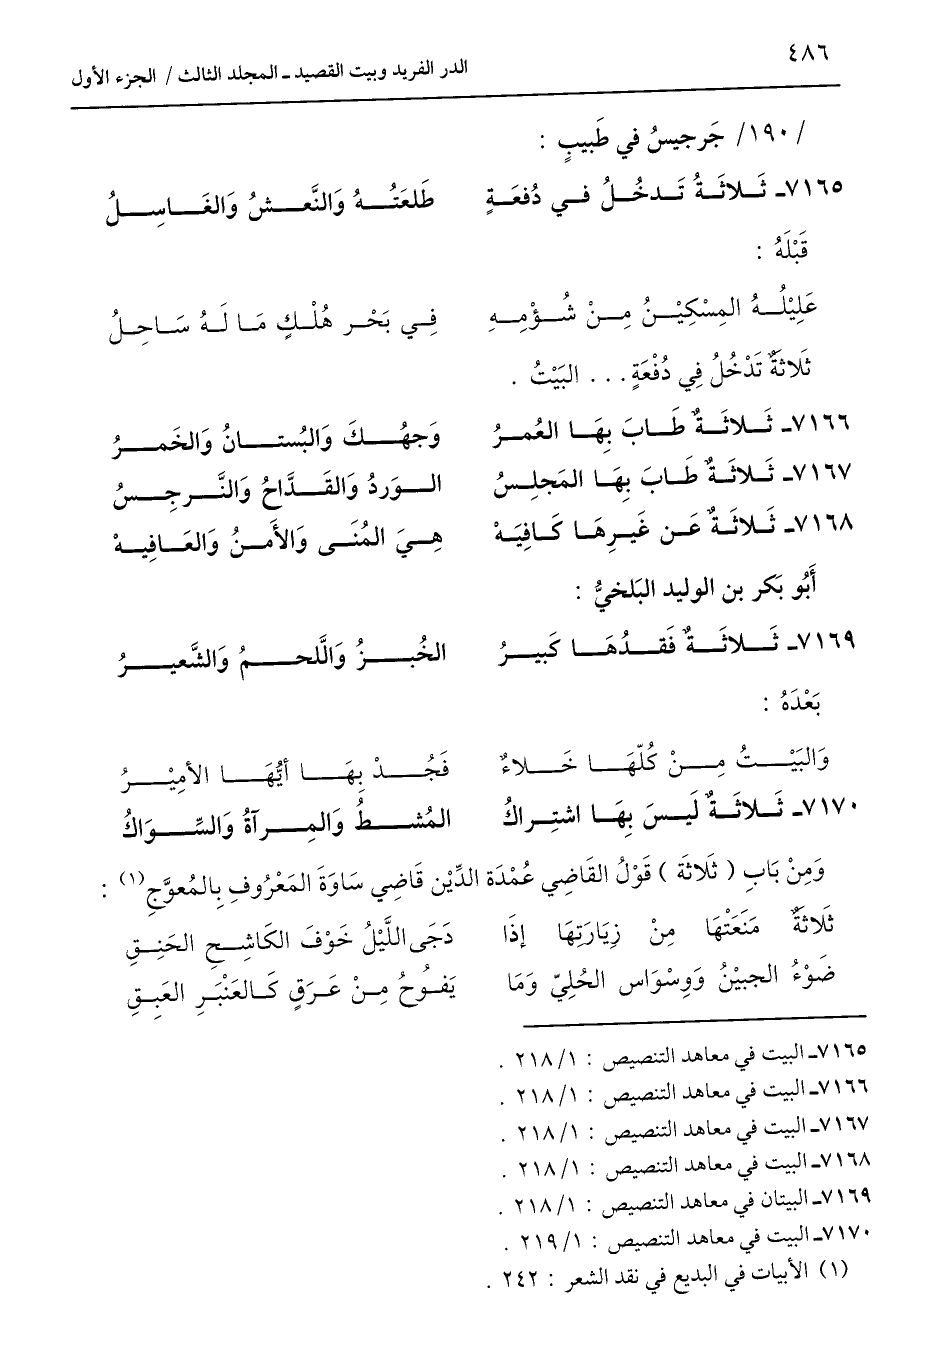 ٤٨٦
الدر الفريد وبيت القصيد ـ المجلد الثالث / الجزء الأول
/ ١٩٠/ جَرجيسُ في طَبيبٍ :
٧١٦٥ـ ثَلاثَةُ تَدخُلُ في دُفعَةٍ طَلعَتُهُ وَالنَّعشُ وَالغَاسِلُ
قَبْلَهُ :
عَلِيْلُهُ المِسْكِيْنُ مِنْ شُؤْمِهِ فِي بَحْرِ هُلْكٍ مَا لَهُ سَاحِلُ
ثَلاثةٌ تَدْخُلُ فِي دُفْعَةٍ . . . البَيْتُ .
٧١٦٦ـ ثَلاثَةٌ طَابَ بِهَا العُمرُ وَجهُكَ وَالبُستانُ وَالخَمرُ
٧١٦٧ـ ثَلاثَةٌ طَابَ بِهَا المَجلِسُ الوَردُ وَالقَدَّاحُ وَالنَّرجِسُ
٧١٦٨ـ ثَلاثَةٌ عَن غَيرِهَا كَافِيَهْ هِيَ المُنَى وَالأَمنُ وَالعَافِيهْ
أَبُو بَكر بن الوليد البَلخيُّ :
٧١٦٩ـ ثَلاثَةٌ فَقدُهَا كَبيرُ الخُبزُ وَاللَّحمُ وَالشَّعيرُ
بَعْدَهُ :
وَالبَيْتُ مِنْ كُلّهَا خَلاءٌ فَجُدْ بِهَا أيُّهَا الأمِيْرُ
٧١٧٠ـ ثَلاثَةٌ لَيسَ بِهَا اشتِراكُ المُشطُ وَالمِرآةُ وَالسِّواكُ
وَمِنْ بَابِ ( ثَلاثَة ) قَوْلُ القَاضِي عُمْدَة الدِّيْن قَاضِي سَاوَةَ المَعْرُوفِ بِالمُعوَّجِ(١) :
ثَلاثَةٌ مَنَعَتْهَا مِنْ زِيَارَتِهَا إذَا دَجَى اللَّيْلُ خَوْفَ الكَاشِحِ الحَنِقِ
ضَوْءُ الجبيْنُ وَوِسْوَاس الحُلِيّ وَمَا يَفُوحُ مِنْ عَرَقٍ كَالعَنْبَرِ العَبِقِ
٧١٦٥ـ البيت في معاهد التنصيص : ٢١٨/١ .
٧١٦٦ـ البيت في معاهد التنصيص : ٢١٨/١ .
٧١٦٧ـ البيت في معاهد التنصيص : ٢١٨/١ .
٧١٦٨ـ البيت في معاهد التنصيص : ٢١٨/١ .
٧١٦٩ـ البيتان في معاهد التنصيص : ٢١٨/١ .
٧١٧٠ـ البيت في معاهد التنصيص : ٢١٩/١ .
(١) الأبيات في البديع في نقد الشعر : ٢٤٢ .